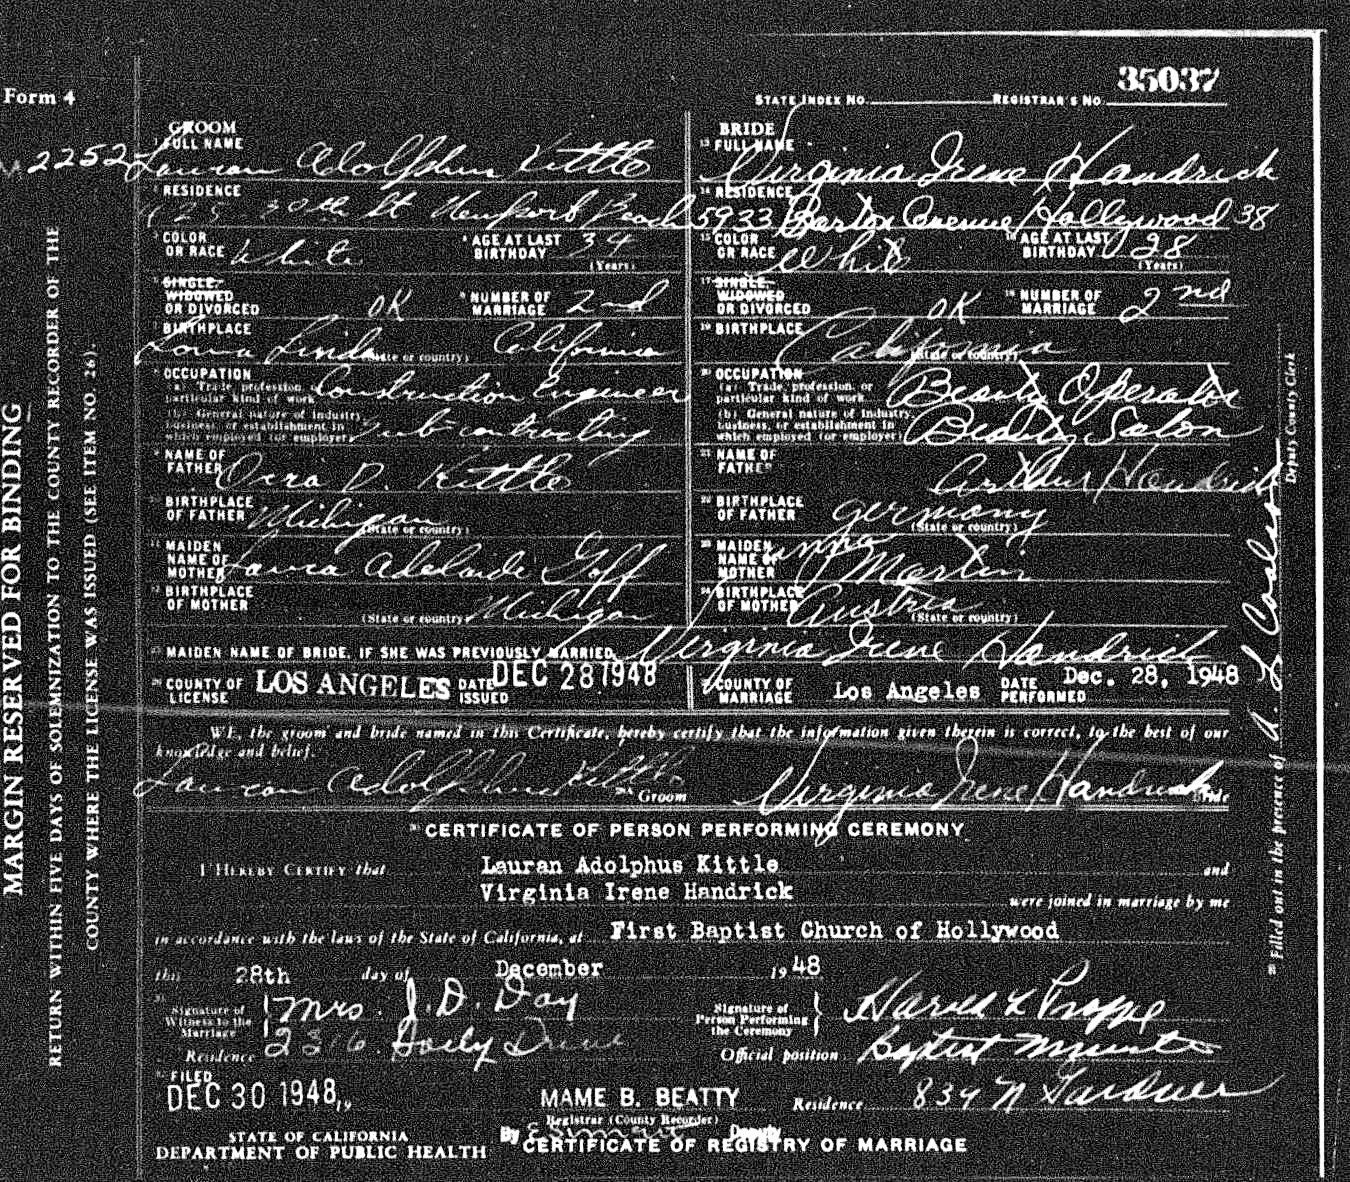 35037
Form 4
STATE INDEX NO. REGISTRAR'S NO.
GROOM
FULL NAME
2252 Lauran Adolphus Kittle
RESIDENCE
30th St Newport Beach
COLOR OR RACE White AGE AT LAST BIRTHDAY 34 (Years)
SINGLE, WIDOWED OR DIVORCED OK NUMBER OF MARRIAGE 2nd
BIRTHPLACE Loma Linda California (State or country)
OCCUPATION
(a) Trade, profession, or particular kind of work Construction Engineer
(b) General nature of industry, business, or establishment in which employed (or employer) Sub-contracting
NAME OF FATHER D. Kittle
BIRTHPLACE OF FATHER Michigan (State or country)
MAIDEN NAME OF MOTHER Laura Adelaide Goff
BIRTHPLACE OF MOTHER Michigan (State or country)
BRIDE
13 FULL NAME
Virginia Irene Handrick
14 RESIDENCE
5933 Barton Avenue Hollywood 38
15 COLOR OR RACE White 16 AGE AT LAST BIRTHDAY 28 (Years)
17 SINGLE, WIDOWED OR DIVORCED OK 18 NUMBER OF MARRIAGE 2nd
19 BIRTHPLACE California (State or country)
20 OCCUPATION
(a) Trade, profession, or particular kind of work Beauty Operator
(b) General nature of industry, business, or establishment in which employed (or employer) Beauty Salon
21 NAME OF FATHER Arthur Handrick
22 BIRTHPLACE OF FATHER Germany (State or country)
23 MAIDEN NAME OF MOTHER Anna Martin
24 BIRTHPLACE OF MOTHER Austria (State or country)
25 MAIDEN NAME OF BRIDE, IF SHE WAS PREVIOUSLY MARRIED Virginia Irene Handrick
COUNTY OF LICENSE LOS ANGELES DATE ISSUED DEC 28 1948 COUNTY OF MARRIAGE Los Angeles DATE PERFORMED Dec. 28, 1948
WE, the groom and bride named in this Certificate, hereby certify that the information given therein is correct, to the best of our
knowledge and belief.
Lauran Adolphus Kittle Groom Virginia Irene Handrick Bride
CERTIFICATE OF PERSON PERFORMING CEREMONY
I HEREBY CERTIFY that Lauran Adolphus Kittle and
Virginia Irene Handrick were joined in marriage by me
in accordance with the laws of the State of California, at First Baptist Church of Hollywood
this 28th day of December 1948
Signature of Witness to the Marriage Mrs. J. D. Day
Residence 2316 Drive
Signature of Person Performing the Ceremony Harold L Proppe
Official position Baptist Minister
Residence 834 N Gardner
FILED
DEC 30 1948, 19
MAME B. BEATTY
Registrar (County Recorder)
By Deputy
STATE OF CALIFORNIA
DEPARTMENT OF PUBLIC HEALTH
CERTIFICATE OF REGISTRY OF MARRIAGE
MARGIN RESERVED FOR BINDING
RETURN WITHIN FIVE DAYS OF SOLEMNIZATION TO THE COUNTY RECORDER OF THE
COUNTY WHERE THE LICENSE WAS ISSUED (SEE ITEM NO. 26).
Filled out in the presence of
Deputy County Clerk